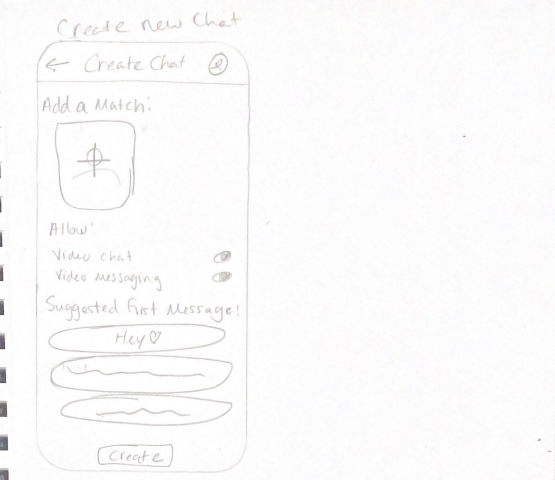 Create new Chat
← Create Chat
Add a Match:
Allow:
Video chat
Video messaging
Suggested First Message:
Hey ♡
Create